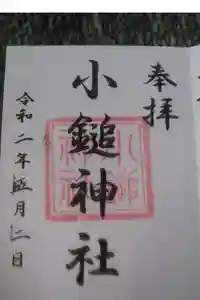 奉拝
小鎚神社
令和二年月日